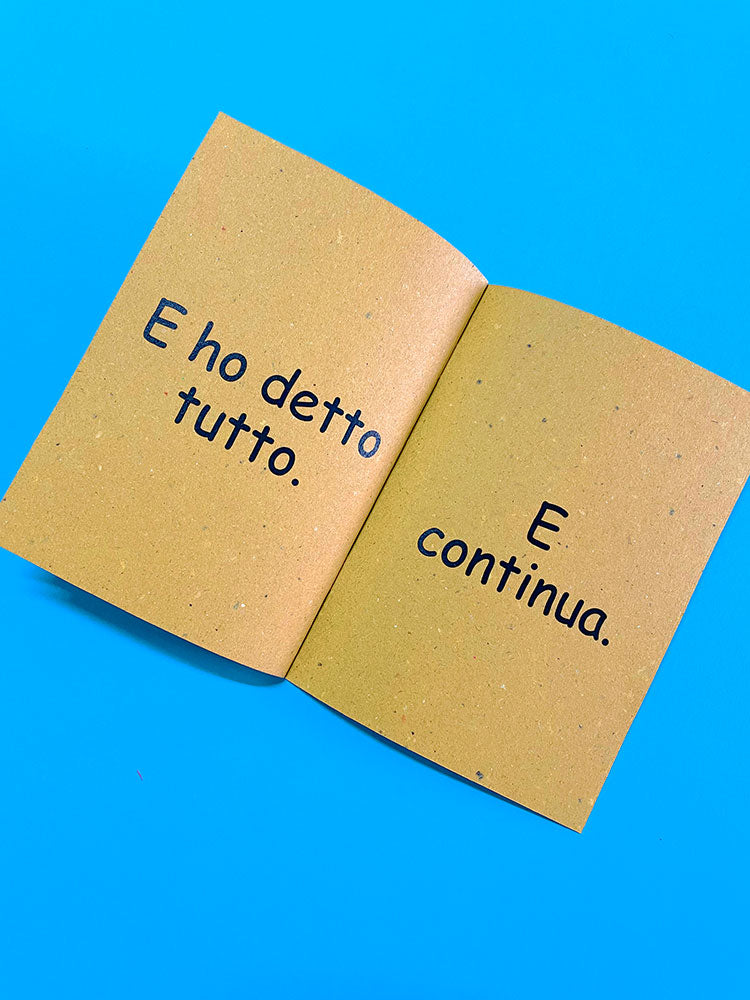 E ho detto
tutto.
E
continua.